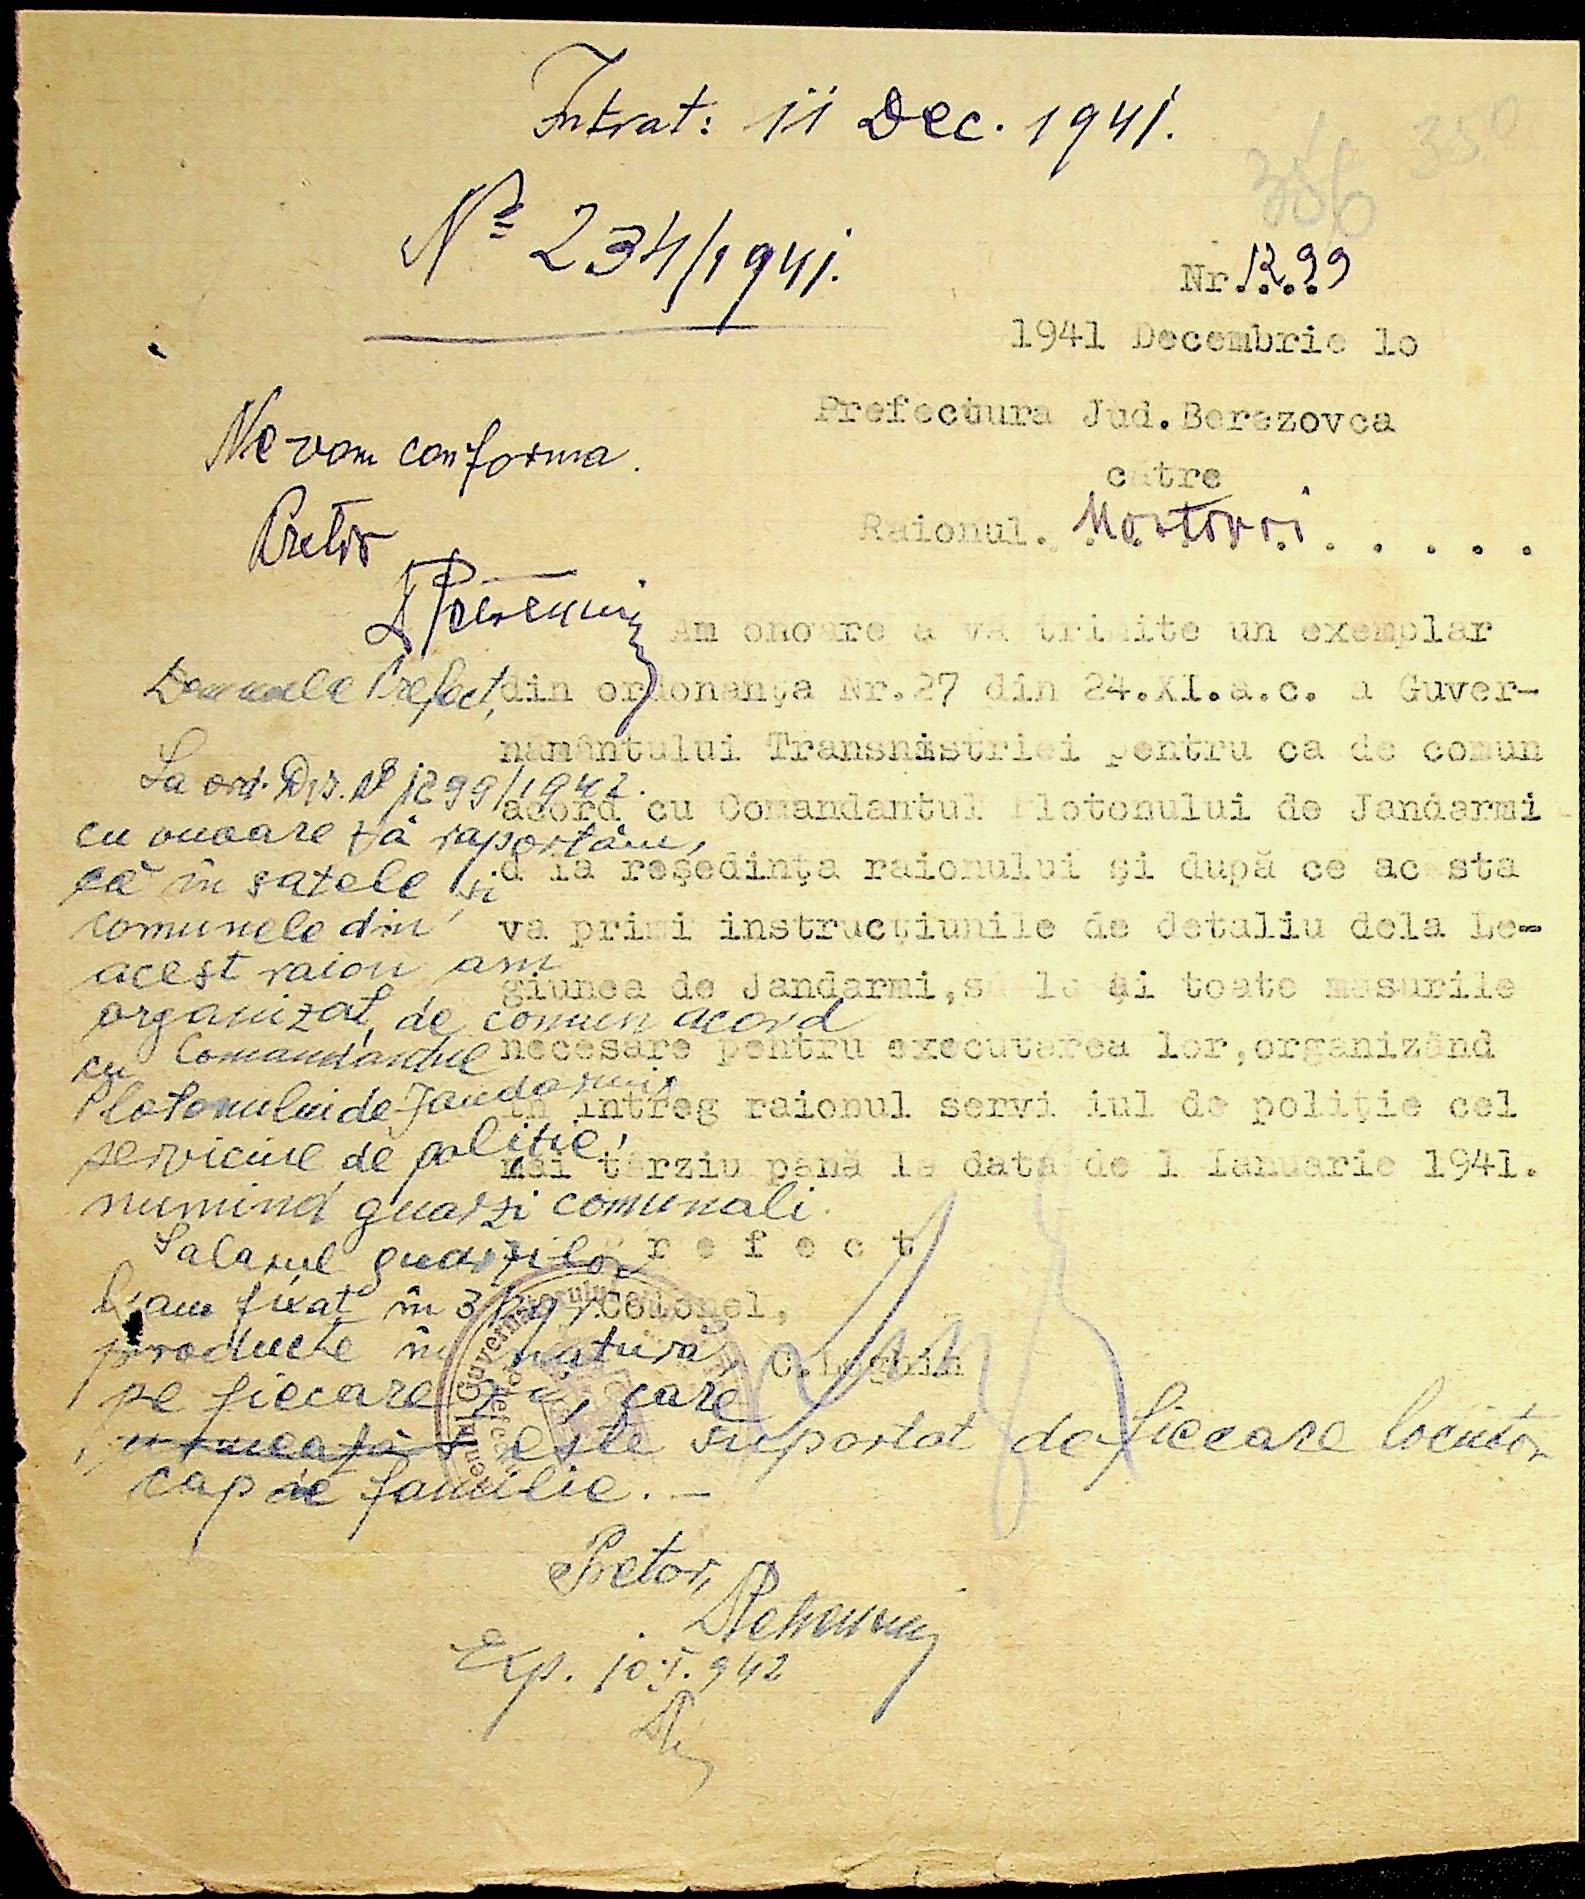 Intrat: 11 Dec. 1941.
356 350
Nº 234/1941.
Nr. 1299
1941 Decembrie 10
Prefectura Jud. Berezovca
catre
Raionul. Mostovoi . . . . .
Ne vom conforma.
Pretor
Am onoare a vă trimite un exemplar
din ordonanţa Nr.27 din 24.XI.a.c. a Guver-
namântului Transnistriei pentru ca de comun
acord cu Comandantul Plotonului de Jandarmi
d la reşedinţa raionului şi după ce acesta
va primi instrucţiunile de detaliu dela Le-
giunea de Jandarmi, să la şi toate masurile
necesare pentru executarea lor, organizând
în întreg raionul serviciul de poliţie cel
mai târziu până la data de 1 Ianuarie 1941.
Prefect
Colonel,
C. Loghin
Domnule Prefect,
La ord. Dvs. Nº 1299/1941.
cu onoare vă raportăm,
că în satele şi
comunele din
acest raion am
organizat, de comun acord
cu Comandantul
Plotonului de Jandarmi,
serviciul de poliţie,
numind guarzi comunali.
Salarul guarzilor
l'am fixat în 3 kgr.
producte în natură,
pe fiecare zi, care
este suportat de fiecare locuitor
cap de familie. —
Pretor,
Exp. 10.I.942
Guvernământul